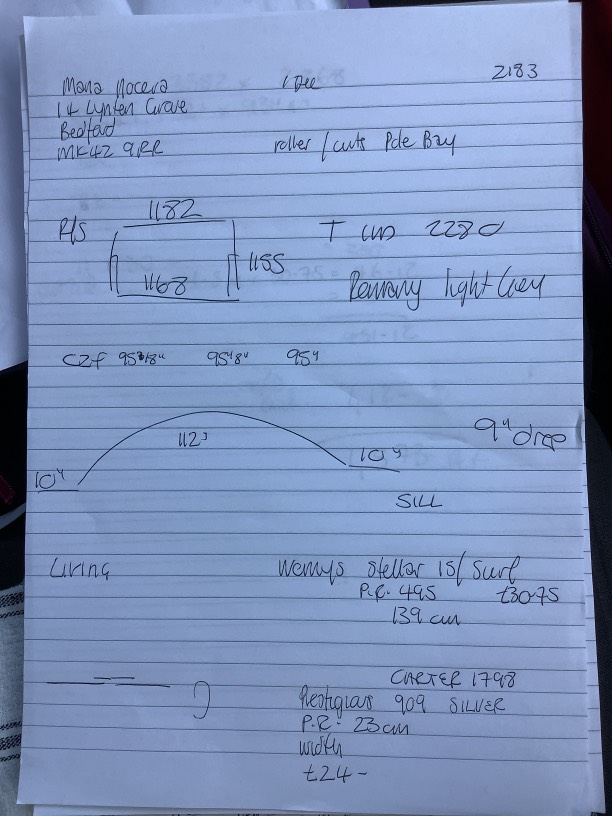 Maria Nocera 1 Dec 2183
14 Lynten Grove
Bedford
MK42 9RR roller / cuts Pole Bay
1182
P/S T 2280
1155
1168 light Grey
C2F 95 3/8" 95 1/8" 95"
9" drop
112"
10" 10"
SILL
Living Wemys Stellar 15/ Surf
P.R. 49.5 £30.75
139 cm
CARTER 1798
Prestigious 909 SILVER
P.R. 23cm
width
£24-